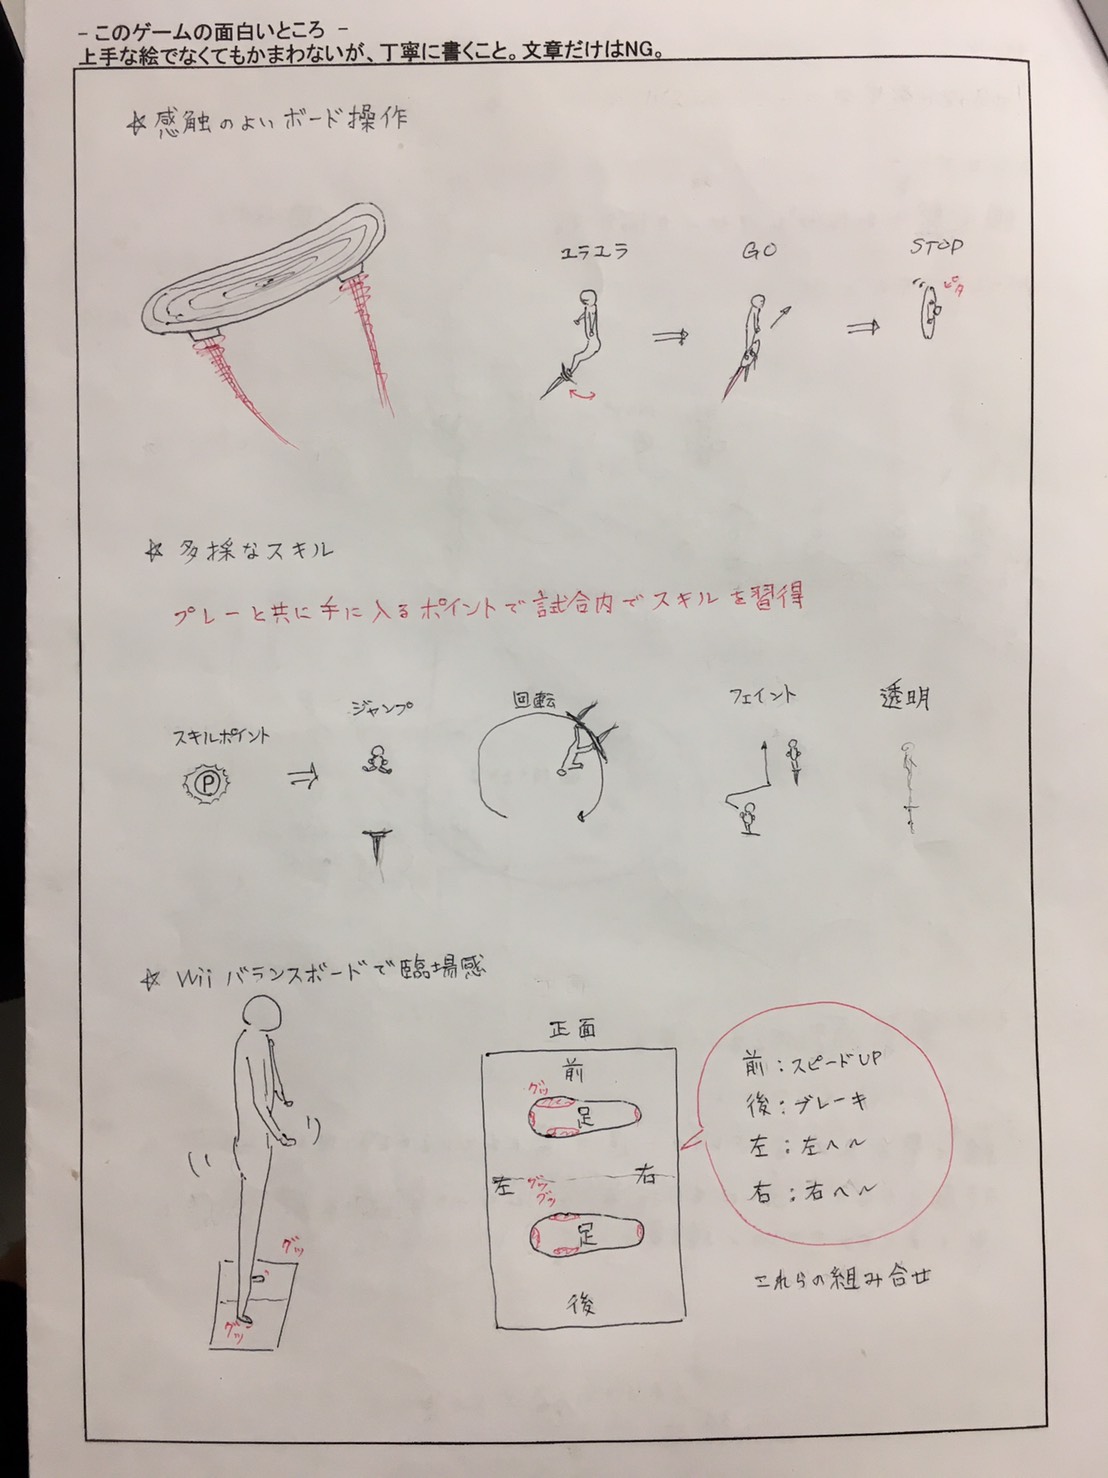 - このゲームの面白いところ -
上手な絵でなくてもかまわないが、丁寧に書くこと。文章だけはNG。
☆ 感触のよいボード操作
ユラユラ
GO
STOP
ピタ
☆ 多採なスキル
プレーと共に手に入るポイントで試合内でスキルを習得
スキルポイント
P
ジャンプ
回転
フェイント
透明
☆ Wii バランスボードで臨場感
グッ
グッ
正面
前
グッ
足
左
グッ
グッ
右
足
後
前：スピードUP
後：ブレーキ
左：左へ〜
右：右へ〜
これらの組み合せ